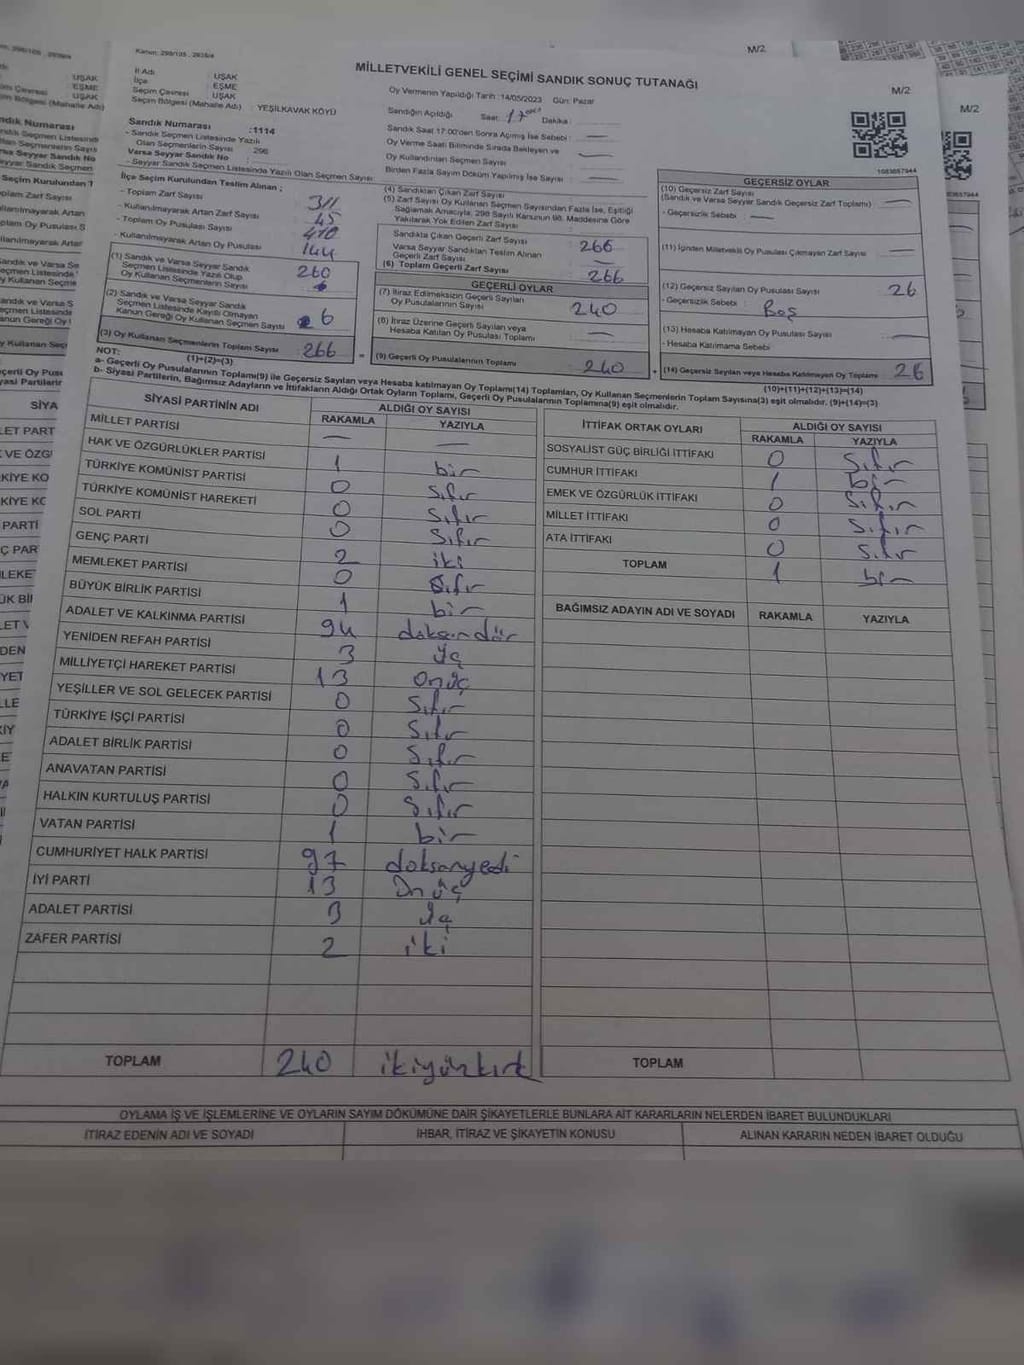 Kanun: 298/105 , 2839/4
M/2
MİLLETVEKİLİ GENEL SEÇİMİ SANDIK SONUÇ TUTANAĞI
M/2
İl Adı : UŞAK
İlçe : EŞME
Seçim Çevresi : UŞAK
Seçim Bölgesi (Mahalle Adı) : YEŞİLKAVAK KÖYÜ
Sandık Numarası :1114
- Sandık Seçmen Listesinde Yazılı
Olan Seçmenlerin Sayısı : 296
Varsa Seyyar Sandık No :
- Seyyar Sandık Seçmen Listesinde Yazılı Olan Seçmen Sayısı:
Oy Vermenin Yapıldığı Tarih :14/05/2023 Gün: Pazar
Sandığın Açıldığı Saat: 17 Dakika :
Sandık Saat 17.00'den Sonra Açılmış İse Sebebi : —
Oy Verme Saati Bitiminde Sırada Bekleyen ve
Oy Kullandırılan Seçmen Sayısı : —
Birden Fazla Sayım Döküm Yapılmış İse Sayısı : —
İlçe Seçim Kurulundan Teslim Alınan ;
- Toplam Zarf Sayısı : 311
- Kullanılmayarak Artan Zarf Sayısı : 45
- Toplam Oy Pusulası Sayısı : 410
- Kullanılmayarak Artan Oy Pusulası : 144
(1) Sandık ve Varsa Seyyar Sandık
Seçmen Listesinde Yazılı Olup
Oy Kullanan Seçmenlerin Sayısı : 260
(2) Sandık ve Varsa Seyyar Sandık
Seçmen Listesinde Kayıtlı Olmayan
Kanun Gereği Oy Kullanan Seçmen Sayısı : 6
(3) Oy Kullanan Seçmenlerin Toplam Sayısı : 266
(1)+(2)=(3)
(4) Sandıktan Çıkan Zarf Sayısı
(5) Zarf Sayısı Oy Kullanan Seçmen Sayısından Fazla İse, Eşitliği
Sağlamak Amacıyla, 298 Sayılı Kanunun 98. Maddesine Göre
Yakılarak Yok Edilen Zarf Sayısı :
Sandıkta Çıkan Geçerli Zarf Sayısı : 266
Varsa Seyyar Sandıktan Teslim Alınan
Geçerli Zarf Sayısı : —
(6) Toplam Geçerli Zarf Sayısı : 266
GEÇERLİ OYLAR
(7) İtiraz Edilmeksizin Geçerli Sayılan
Oy Pusulalarının Sayısı : 240
(8) İtiraz Üzerine Geçerli Sayılan veya
Hesaba Katılan Oy Pusulası Toplamı : —
(9) Geçerli Oy Pusulalarının Toplamı : 240
1083657944
GEÇERSİZ OYLAR
(10) Geçersiz Zarf Sayısı
(Sandık ve Varsa Seyyar Sandık Geçersiz Zarf Toplamı) : —
- Geçersizlik Sebebi : —
(11) İçinden Milletvekili Oy Pusulası Çıkmayan Zarf Sayısı : —
(12) Geçersiz Sayılan Oy Pusulası Sayısı : 26
- Geçersizlik Sebebi : Boş
(13) Hesaba Katılmayan Oy Pusulası Sayısı : —
- Hesaba Katılmama Sebebi :
(14) Geçersiz Sayılan veya Hesaba Katılmayan Oy Toplamı : 26
(10)+(11)+(12)+(13)=(14)
NOT:
a- Geçerli Oy Pusulalarının Toplamı(9) ile Geçersiz Sayılan veya Hesaba katılmayan Oy Toplamı(14) Toplamları, Oy Kullanan Seçmenlerin Toplam Sayısına(3) eşit olmalıdır. (9)+(14)=(3)
b- Siyasi Partilerin, Bağımsız Adayların ve İttifakların Aldığı Ortak Oyların Toplamı, Geçerli Oy Pusulalarının Toplamına(9) eşit olmalıdır.
SİYASİ PARTİNİN ADI ALDIĞI OY SAYISI
RAKAMLA YAZIYLA
MİLLET PARTİSİ — —
HAK VE ÖZGÜRLÜKLER PARTİSİ 1 bir
TÜRKİYE KOMÜNİST PARTİSİ 0 Sıfır
TÜRKİYE KOMÜNİST HAREKETİ 0 Sıfır
SOL PARTİ 0 Sıfır
GENÇ PARTİ 2 iki
MEMLEKET PARTİSİ 0 Sıfır
BÜYÜK BİRLİK PARTİSİ 1 bir
ADALET VE KALKINMA PARTİSİ 94 doksandör
YENİDEN REFAH PARTİSİ 3 Üç
MİLLİYETÇİ HAREKET PARTİSİ 13 Onüç
YEŞİLLER VE SOL GELECEK PARTİSİ 0 Sıfır
TÜRKİYE İŞÇİ PARTİSİ 0 Sıfır
ADALET BİRLİK PARTİSİ 0 Sıfır
ANAVATAN PARTİSİ 0 Sıfır
HALKIN KURTULUŞ PARTİSİ 0 Sıfır
VATAN PARTİSİ 1 bir
CUMHURİYET HALK PARTİSİ 97 doksanyedi
İYİ PARTİ 13 Onüç
ADALET PARTİSİ 3 Üç
ZAFER PARTİSİ 2 iki
TOPLAM 240 ikiyüzkırk
İTTİFAK ORTAK OYLARI ALDIĞI OY SAYISI
RAKAMLA YAZIYLA
SOSYALİST GÜÇ BİRLİĞİ İTTİFAKI 0 Sıfır
CUMHUR İTTİFAKI 1 bir
EMEK VE ÖZGÜRLÜK İTTİFAKI 0 Sıfır
MİLLET İTTİFAKI 0 Sıfır
ATA İTTİFAKI 0 Sıfır
TOPLAM 1 bir
BAĞIMSIZ ADAYIN ADI VE SOYADI RAKAMLA YAZIYLA
TOPLAM
OYLAMA İŞ VE İŞLEMLERİNE VE OYLARIN SAYIM DÖKÜMÜNE DAİR ŞİKAYETLERLE BUNLARA AİT KARARLARIN NELERDEN İBARET BULUNDUKLARI
İTİRAZ EDENİN ADI VE SOYADI IHBAR, İTİRAZ VE ŞİKAYETİN KONUSU ALINAN KARARIN NEDEN İBARET OLDUĞU